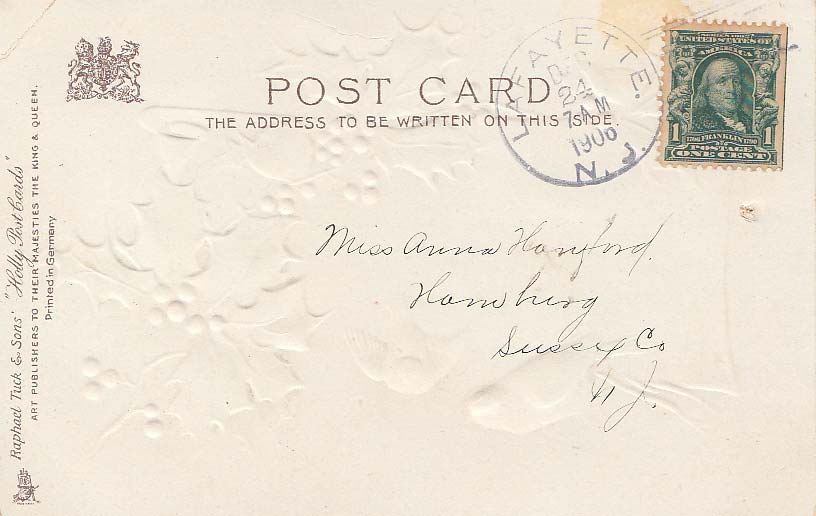 POST CARD
THE ADDRESS TO BE WRITTEN ON THIS SIDE.
LAFAYETTE.
DEC
24
7 AM
1906
N.J.
UNITED STATES OF
AMERICA
1 1706 FRANKLIN 1790 1
POSTAGE
ONE CENT
Miss Anna Hanford.
Hamburg
Sussex Co
N J.
Raphael Tuck & Sons' "Holly Post Cards"
ART PUBLISHERS TO THEIR MAJESTIES THE KING & QUEEN.
Printed in Germany